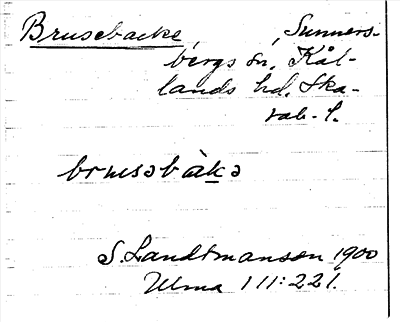 Brusebacke, Sunners-
bergs sn, Kål-
lands hd. Ska-
rab. l.
brusəbàkə
S. Landtmanson 1900
Ulma 111:221.